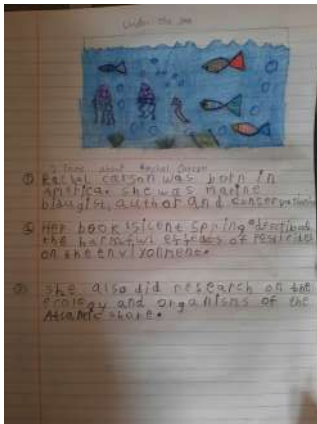 Under the sea
3 facts about Rachel Carson
① Rachel carson was born in
America. she was marine
biaugist, author and conservationist
② Her book silent spring
the harmfwl effeacs of pesticites
on the environment.
③ she also did research on the
ecology and organisms of the
Atlantic shore.